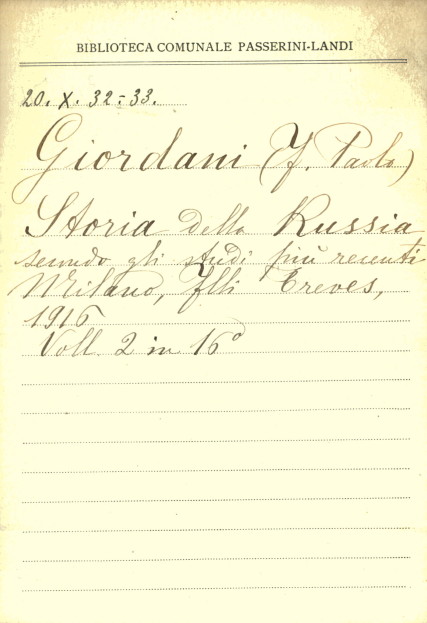 BIBLIOTECA COMUNALE PASSERINI-LANDI
20. X. 32-33.
Giordani (F. Paolo)
Storia della Russia
secondo gli studi più recenti
Milano, Flli Treves,
1916
Voll. 2 in 16°